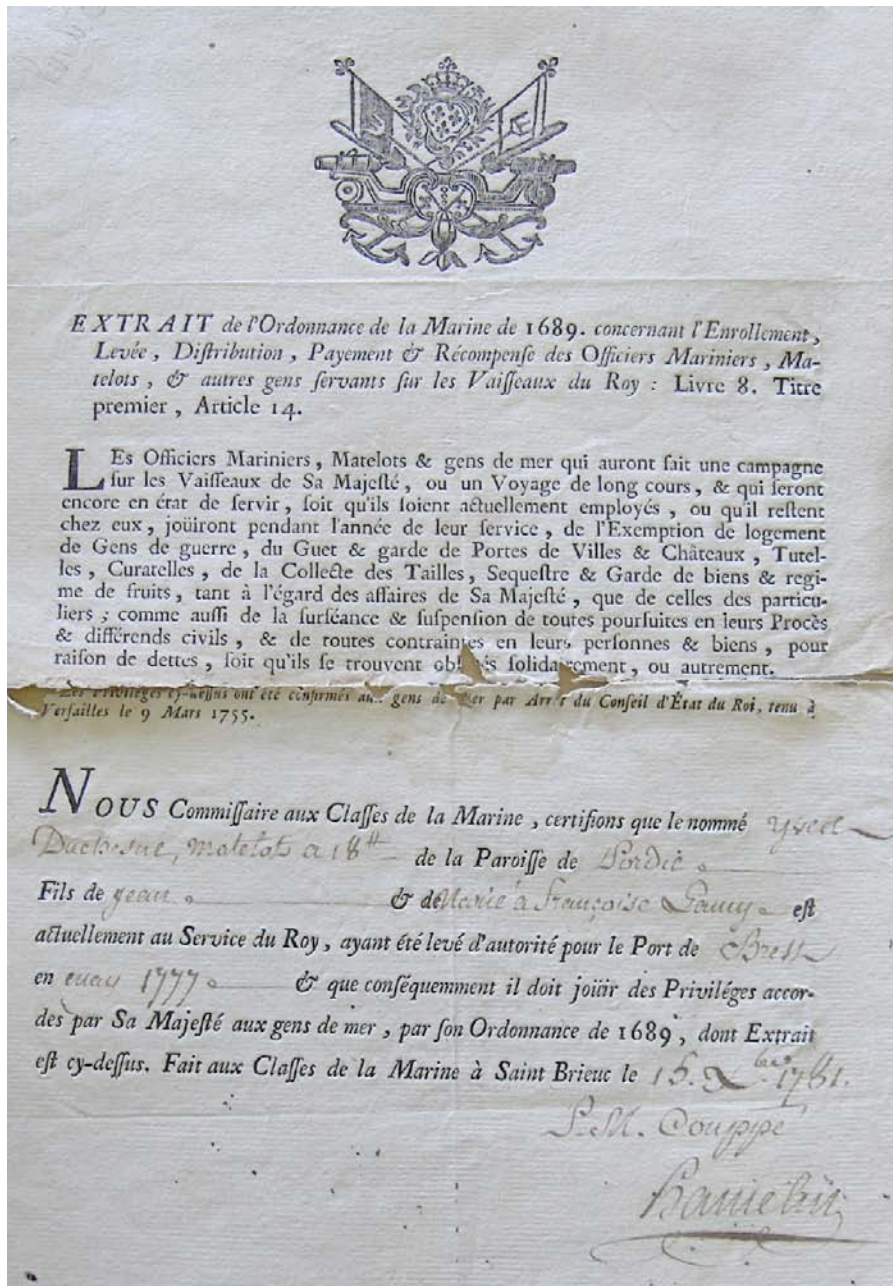 EXTRAIT de l'Ordonnance de la Marine de 1689. concernant l'Enrollement,
Levée, Diſtribution, Payement & Récompenſe des Officiers Mariniers, Ma-
telots, & autres gens ſervants ſur les Vaiſſeaux du Roy : Livre 8. Titre
premier, Article 14.
LEs Officiers Mariniers, Matelots & gens de mer qui auront fait une campagne
ſur les Vaiſſeaux de Sa Majeſté, ou un Voyage de long cours, & qui ſeront
encore en état de ſervir, ſoit qu'ils ſoient actuellement employés, ou qu'il reſtent
chez eux, joüiront pendant l'année de leur ſervice, de l'Exemption de logement
de Gens de guerre, du Guet & garde de Portes de Villes & Châteaux, Tutel-
les, Curatelles, de la Collecte des Tailles, Sequeſtre & Garde de biens & regi-
me de fruits, tant à l'égard des affaires de Sa Majeſté, que de celles des particu-
liers ; comme auſſi de la ſurſéance & ſuſpenſion de toutes pourſuites en leurs Procès
& différends civils, & de toutes contraintes en leurs perſonnes & biens, pour
raiſon de dettes, ſoit qu'ils ſe trouvent ſolidairement, ou autrement.
Les Privilèges cy-deſſus ont été confirmés gens de mer par Arrêt du Conſeil d'État du Roi, tenu à
Verſailles le 9 Mars 1755.
NOUS Commiſſaire aux Claſſes de la Marine, certifions que le nommé
Ducheſne, matelot a 18 de la Paroiſſe de Pordic
Fils de jean & de Françoiſe eſt
actuellement au Service du Roy, ayant été levé d'autorité pour le Port de Breſt
en 1777 & que conſéquemment il doit joüir des Priviléges accor-
dés par Sa Majeſté aux gens de mer, par ſon Ordonnance de 1689, dont Extrait
eſt cy-deſſus. Fait aux Claſſes de la Marine à Saint Brieuc le 15. Xbre 1781.
P. M. Couppé